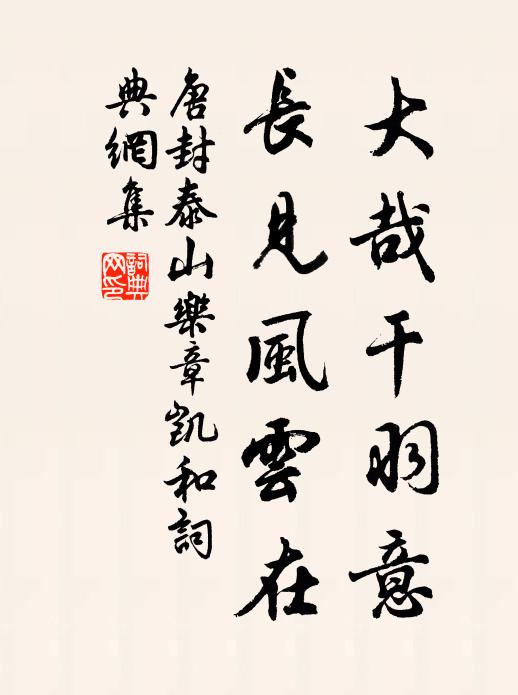 大哉干羽意
長見風雲在
唐封泰山樂章凱和詞
典網集
詞典
网印